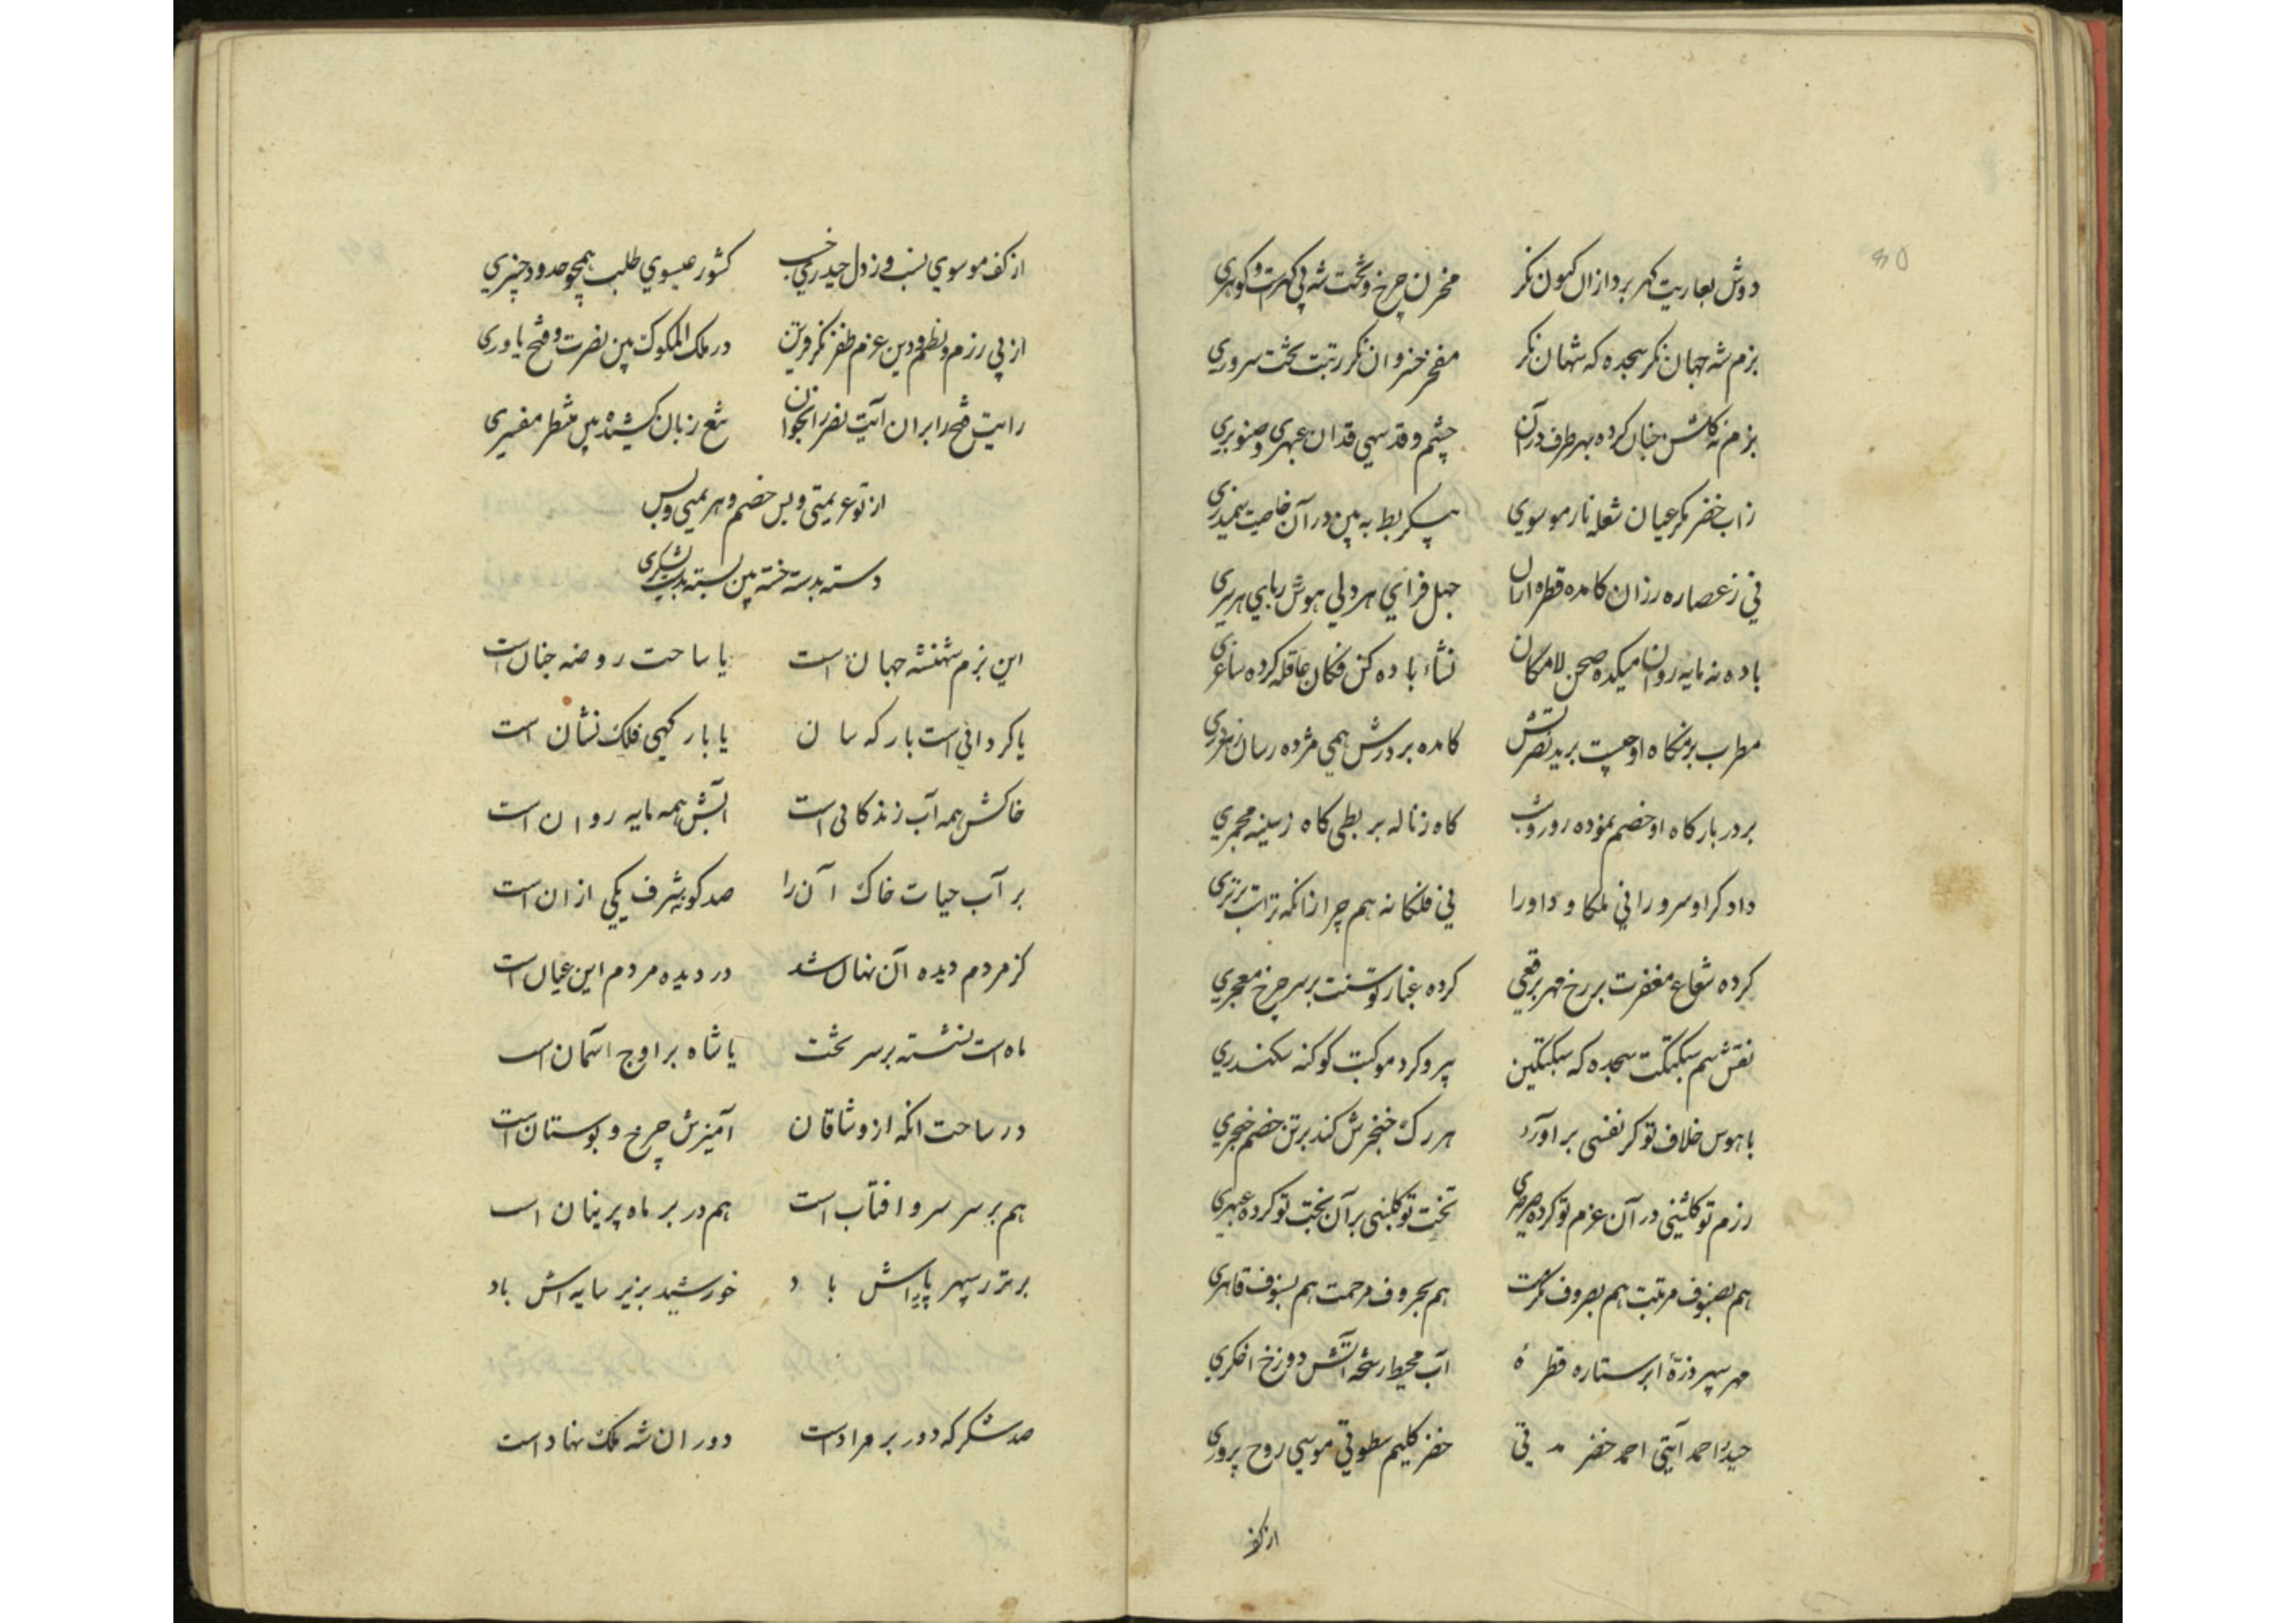 دوش بعاریت کهر برد ازان کیون نکر مخزن چرخ و تخت شه پی کهرت و کوهری
بزم شه جهان نکر سجده که شهان نکر مفخر خسروان نکر رتبت تخت سروری
بزم نه کلشن جنان کرده بهر طرف در آن چشم و قد سهی قدان عبهری و صنوبری
زاب خضر نکر عیان شعله نار موسوی پیکر بط به بین در آن خاصیت سمندری
نی ز عصاره رزان کامده قطره ازان جهل فزای هر دلی هوش ربای هر سری
باده نه مایه روان میکده صحن لامکان نشاء باده کن فکان عاقله کرده ساغری
مطرب بزمکاه او چیست برید نصرتش کامده بر درش همی مژده رسان ز هر دری
بر در بارکاه او خصم نموده روز و شب کاه ز ناله بربطی کاه ز سینه مجمری
دادکرا و سرورا نی ملکا و داورا نی فلکا نه هم چرا زانکه تراست برتری
کرده شعاع مغفرت بر رخ مهر برقعی کرده غبار توسنت بر سر چرخ معجری
نقش سم سبکتکت سجده که سبکتکین پیرو کرد موکبت کوکبه سکندری
با هوس خلاف تو کر نفسی بر آورد هر رک خنجرش کند بر تن خصم خنجری
رزم تو کلشنی در آن عزم تو کرده صرصری تخت تو کلبنی بر آن بخت تو کرده عبهری
هم بصنوف مرتبت هم بصروف مکرمت هم بحروف مرحمت هم بسیوف قاهری
مهر سپهر ذرۀ ابر ستاره قطرۀ آب محیط رشحۀ آتش دوزخ اخکری
حیدر احمد آیتی احمد خضر مدتی خضر کلیم سطوتی موسی روح پروری
از کف
از کف موسوی نسب وز دل حیدری حسب کشور عیسوی طلب همچو حدود خیبری
از پی رزم و نظم دین عزم ظفر نکر قرین در ملک الملوک بین نصرت و فتح یاوری
رایت فتح را بران آیت نصر را بخوان تیغ زبان کشیده بین منتظر مفسری
از تو عزیمتی و بس خصم و هزیمتی و بس
دسته بدسته خسته بین بسته بدست لشکری
این بزم شهنشه جهان است یا ساحت روضه جنان است
یا کردانی است بارکه سان یا بارکهی فلک نشان است
خاکش همه آب زندکانی است آبش همه مایه روان است
بر آب حیات خاک آن را صد کونه شرف یکی از آن است
کز مردم دیده آن نهان شد در دیده مردم این عیان است
ماه است نشسته بر سر تخت یا شاه بر اوج آسمان است
در ساحت آنکه از وشاقان آمیزش چرخ و بوستان است
هم بر سر سرو افتاب است هم در بر ماه پرنیان است
برتر ز سپهر پایه اش باد خورشید بزیر سایه اش باد
صد شکر که دور بر مراد است دوران شه ملک نهاد است